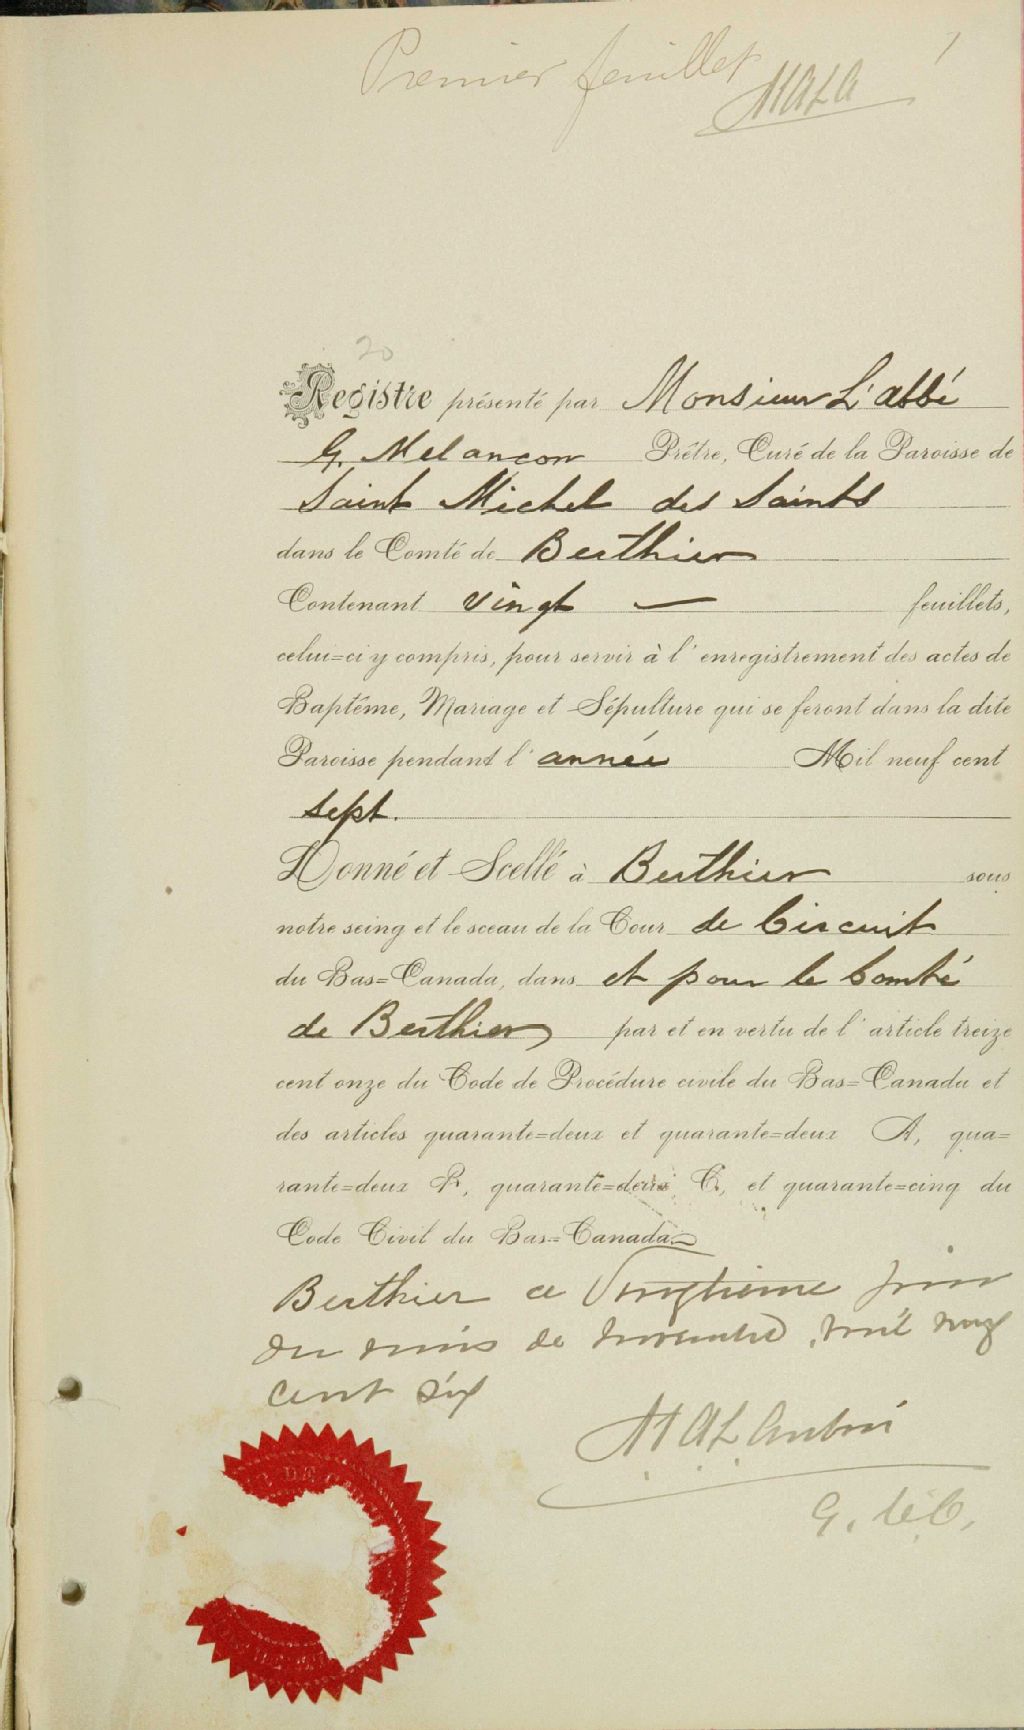 Premier feuillet
MALA
1
20
Registre présenté par Monsieur L'abbé
G. Melançon Prêtre, Curé de la Paroisse de
Saint Michel des Saints
dans le Comté de Berthier
Contenant vingt — feuillets,
celui=ci y compris, pour servir à l'enregistrement des actes de
Baptême, Mariage et Sépulture qui se feront dans la dite
Paroisse pendant l'année Mil neuf cent
sept.
Donné et Scellé à Berthier sous
notre seing et le sceau de la Cour de Circuit
du Bas=Canada, dans et pour le Comté
de Berthier par et en vertu de l'article treize
cent onze du Code de Procédure civile du Bas=Canada et
des articles quarante=deux et quarante=deux A, qua=
rante=deux B, quarante=deux C, et quarante=cinq du
Code Civil du Bas=Canada.
Berthier ce vingtième jour
du mois de novembre, mil neuf
cent six
DE